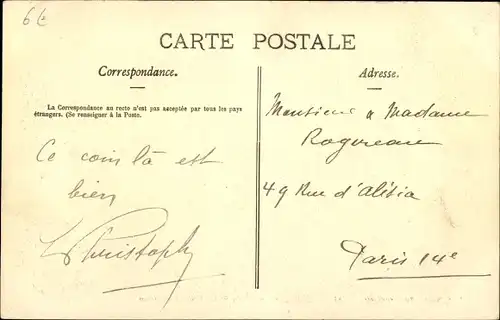 6€
CARTE POSTALE
Correspondance.
La Correspondance au recto n'est pas acceptée par tous les pays
étrangers. (Se renseigner à la Poste.
Ce coin là est
bien
Christoph
Adresse.
Monsieur & Madame
Rogereau
49 Rue d'Alésia
Paris 14e